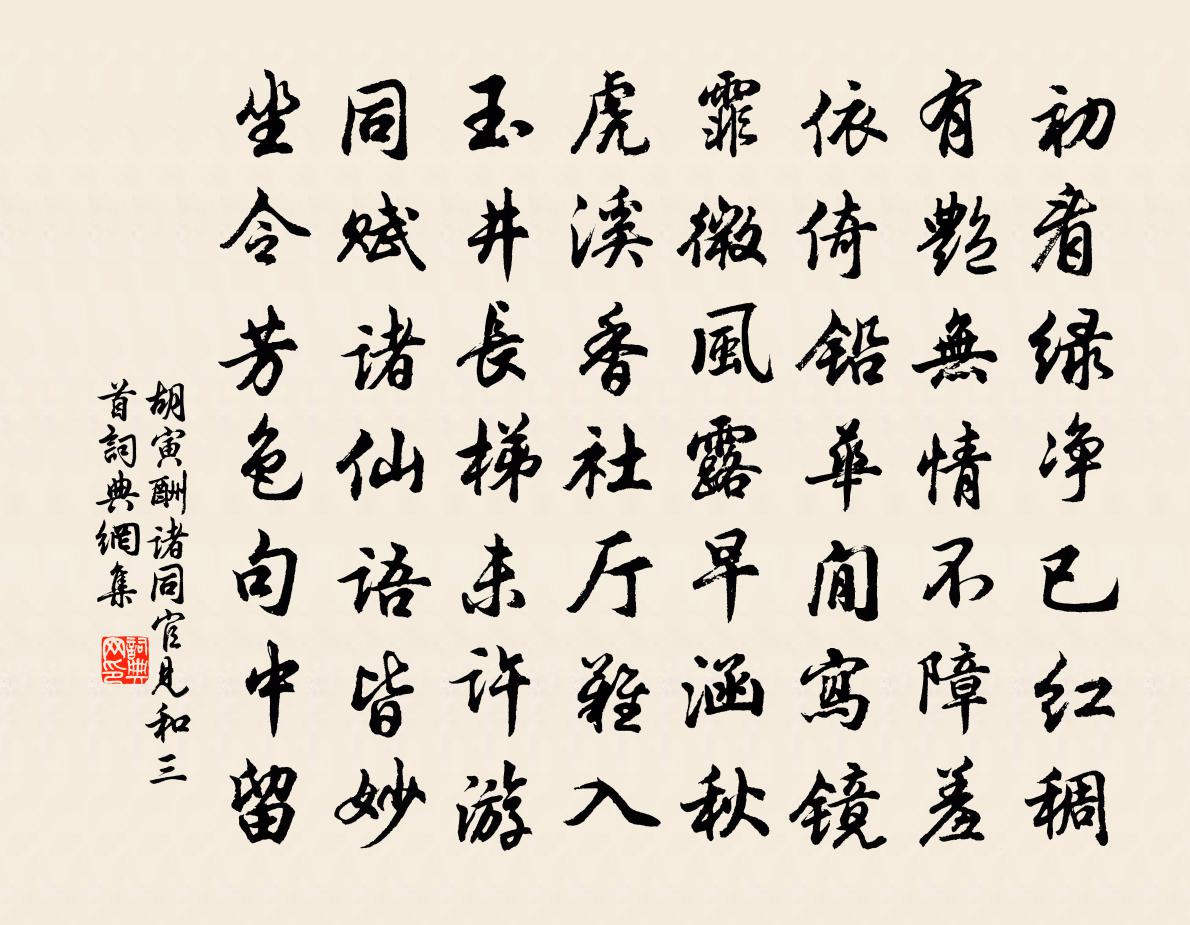 初看绿净已红稠
有艶無情不障羞
依倚铅華閒寫镜
霏微風露早涵秋
虎溪香社厅難入
玉井長梯未许游
同赋诸仙语皆妙
坐令芳色句中留
胡寅酬诸同官見和三
首詞典網集
詞典网印